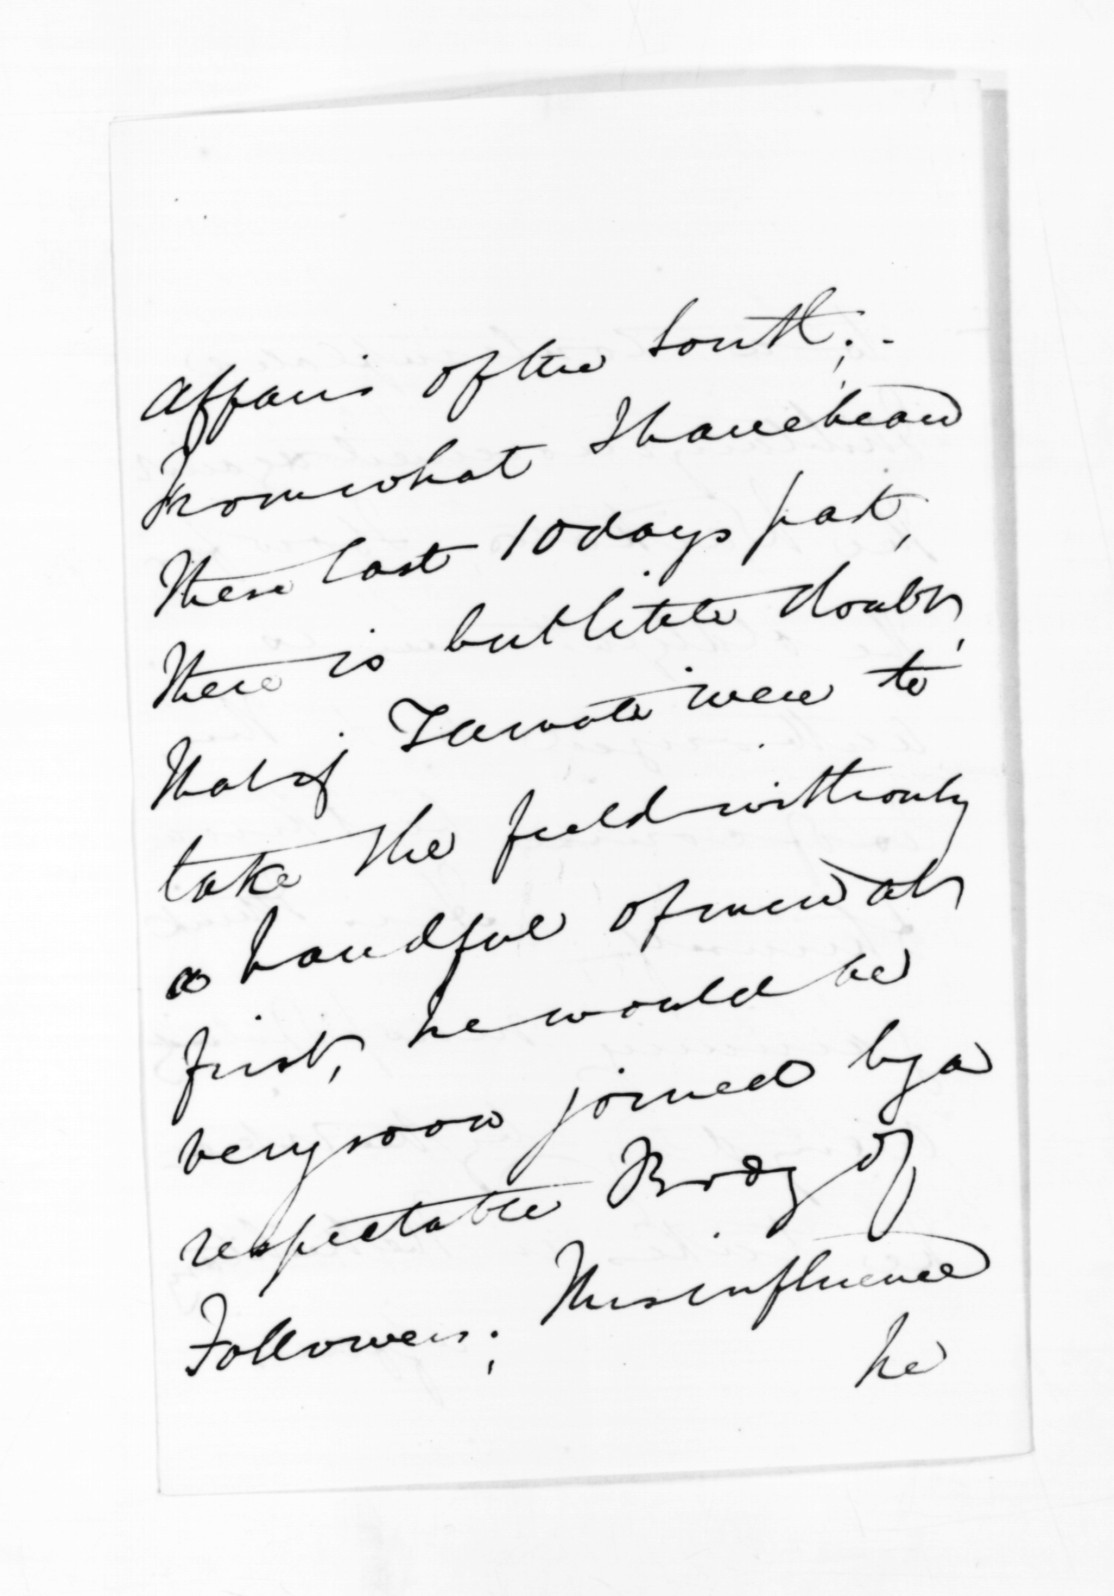 affairs of the South; -
From what I have heard
these last 10 days past,
there is but little doubt,
that if Tawate were to
take the field with only
a handful of men at
first, he would be
very soon joined by a
respectable Body of
Followers; This influence
he